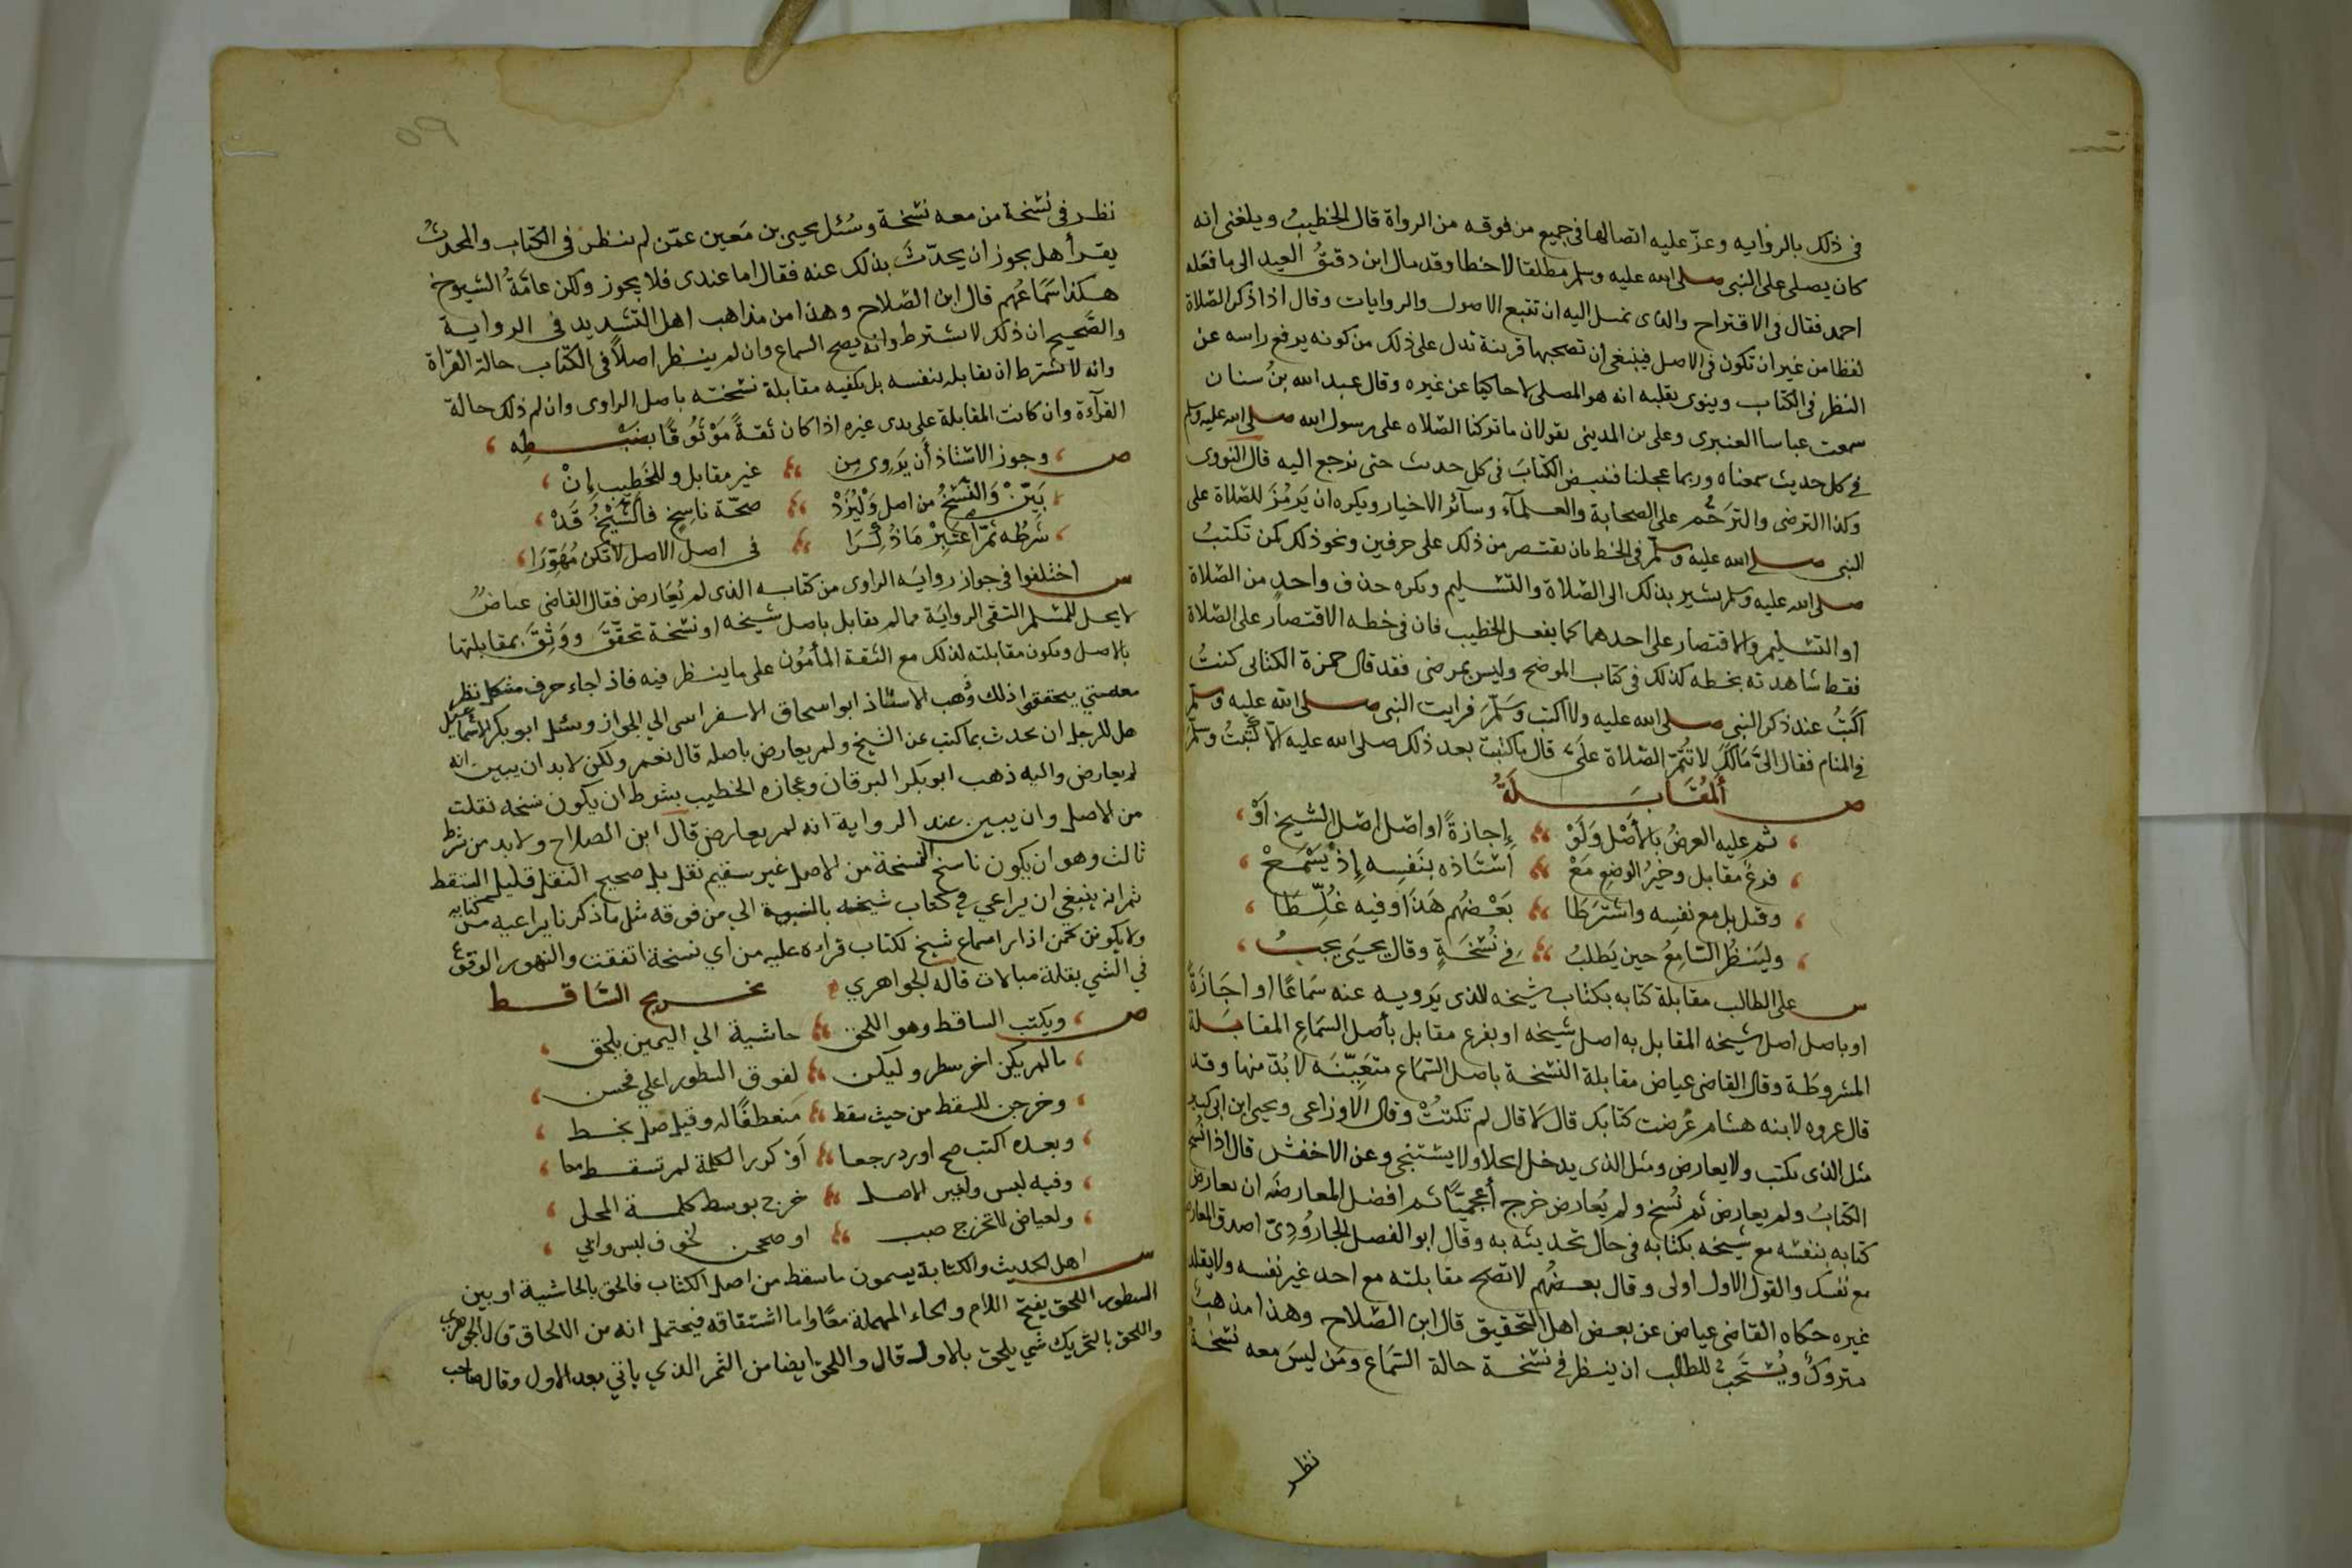 في ذلك بالرواية وعزّ عليه اتصالها في جميع من فوقه من الرواة قال الخطيبُ وبلغني انه
كان يصلي على النبي صلى الله عليه وسلم مطلقا لا خطا وقد مال ابن دقيقُ العيد الى ما فعله
احمد فقال في الاقتراح والذي نميل اليه ان تتبع الاصول والروايات وقال اذا ذكر الصّلاة
لفظا من غير ان تكون في الاصل فينبغي ان تصحبها قرينة تدل على ذلك من كونه يرفع راسه عن
النظر في الكتاب وينوى بقلبه انه هو المصلى لا حاكيا عن غيره وقال عبد الله بنُ سنان
سمعت عباسا العنبرى وعلى بن المدينى يقولان ما تركنا الصّلاه على رسول الله صلى الله عليه وسلم
في كل حديث سمعناه وربما عجلنا فنبيض الكتابَ في كل حديث حتى نرجع اليه قال النووى
وكذا الترضى والترَحّم على الصحابة والعلمآء وسآئر الاخيار ويكره ان يَرمُزَ للصّلاة على
النبى صلى الله عليه وسلّم في الخط بان يقتصر من ذلك على حرفين ونحو ذلك كمن تكتبُ
صلى الله عليه وسلم يشير بذلك الى الصّلاة والتسليم ويكره حذف واحدٍ من الصّلاة
او التسليم والاقتصار على احدهما كما يفعل الخطيب فان في خطه الاقتصار على الصّلاة
فقط شاهدته بخطه كذلك في كتاب الموضح وليس بمرضى فقد قال حمزة الكنانى كنتُ
اكتُبُ عند ذكر النبى صلى الله عليه ولا اكتب وَسَلّمَ فرايت النبى صلى الله عليه وسلّم
في المنام فقال الىَّ مَالَكَ لا تُتِمّ الصّلاة علَىّ قال ما كتبت بعد ذلك صلى الله عليه الاّ كَتَبتُ وسلّمَ
ص اَلمُقَابَلَةُ
ثم عليه العرضُ بالأَصْل وَلَوْ إِجازةً او اصْل اصْل الشيخ اَوْ
فرعٍ مقابل وخيرُ الوضعِ مَعْ اُسْتَاذه بنَفسِه إِذْ يَسْمَعْ
وقيل بل مع نفسِه واشْتَرطَا بَعْضُهُم هَذَا وفيه غُلِّطَا
وليَنظُر السّامعُ حين يَطلبُ في نُسْخَةٍ وقال يحيَى يجبُ
س على الطالب مقابلة كتابه بكتاب شيخه الذى يَرويه عنه سَمَاعًا او اِجَازَةً
او باصل اصل شيخه المقابل به اصل شيخه او بفرع مقابل بأصل السّمَاعِ المقابَلة
المشروطَة وقال القاضى عياض مقابلة النسْخة باصل السّمَاع متعَيّنَه لا بُدّ منها وقد
قال عروه لابنه هشام عُرضت كتابك قال لا قال لم تكتبُْ وقال الاوزاعى ويحيى ابن ابى كثير
مثل الذى يكتب ولا يعارض ومثل الذى يدخل الخلا ولا يستنجى وعن الاخفش قال اذا نُسخ
الكتابُ ولم يعارض ثم نُسخ ولم يُعارض خرج أعجميّا ثم افضل المعارضَه ان يعارض
كتابه بنفسْه مع شيخه بكتابه في حال تحديثه به وقال ابو الفضل الجارُودِىّ اصدق المعارضة
مع نفسك والقول الاول اولى وقال بعضهُم لا تصح مقابلته مع احد غير نفسه ولا يقلد
غيره حكاه القاضى عياض عن بعض اهل التحقيق قال ابن الصّلاح وهذا مذهبٌ
متروكٌ ويُسْتَحَبُّ للطالب ان ينظر في نسْخة حالة السّمَاع ومَن ليسَ معه نسْخةٌ
نظر
نظر في نُسْخة من معه نسْخة وسُئل يحيى بن مَعين عمّن لم ينظر في الكتاب والمحدثُ
يقرأ هل يجوز ان يحدّثَ بذلك عنه فقال اما عندى فلا يجوز ولكن عامّةُ الشيوخ
هكذا سَمَاعُهم قال ابن الصّلاح وهذا من مذاهب اهل التشديد في الرواية
والصّحيح ان ذلك لا يشترط وانه يصح السماع وان لم ينظر اصلاً في الكتاب حالة القرأة
وانه لا يشترط ان يقابله بنفسه بل يكفيه مقابلة نسْخته باصل الراوى وان لم ذلك حالة
القرآءة وان كانت المقابلة على يدى غيره اذا كان ثقةً مَوْثُوقًا بضَبْطِهِ
ص وجوز الاستاذ أن يَروِى مِن غير مقابل وللخَطِيبِ إِنْ
بَيّنْ وَالنّسْخُ من اصل وَلْيُزَدْ صحّة ناسِخٍ فالشّيْخُ قَدْ
شَرطُه ثُمّ اعتَبِرْ مَا ذُكِرَا في اصل الاصل لا تكن مُهَوِّرَا
س اختلفوا في جواز روايَه الراوى من كتابه الذى لم يُعَارض فقال القاضى عياضٌ
لا يحل للمسْلم التقى الروايَة مما لم يقابل باصل شيخه او نسْخة تحقّقَ ووَثِقَ بمقابلتها
بالاصل وتكون مقابلته لذلك مع الثقة المأمُون على ما ينظر فيه فاذا جاء حرف مشكل نظر
معه حتي يحققوا ذلك وذهب الاستاذ ابو اسحاق الاسفرايني الي الجواز وسئل ابو بكر الاسماعيلي
هل للرجل ان يحدث بما كتب عن الشيخ ولم يعارض باصله قال نعم ولكن لا بد ان يبين انه
لم يعارض واليه ذهب ابو بكر البرقان وعجازه الخطيب بشرط ان يكون نسخه نقلت
من الاصل وان يبين عند الرواية انه لم يعارض قال ابن الصلاح ولا بد من شرط
ثالث وهو ان يكون ناسخ النسخة من الاصل غير سقيم نقل بل صحيح النقل قليل السقط
ثم انه ينبغي ان يراعي في كتاب شيخه بالنسبة الي من فوقه مثل ما ذكرنا يراعيه من كتابه
ولا يكونن كمن اذا را سماع شيخ لكتاب قراءه عليه من اي نسخة اتفقت والتهور الوقوع
في الشي بقلة مبالات قاله الجواهري
تخريج السَاقط
ص ويكتب الساقط وهو اللحق حاشية الي اليمين يلحق
ما لم يكن اخر سطر وليكن لفوق السطور اعلي فحسن
وخرجن للسقط من حيث سقط منعطفًا له وقيل صل بخط
وبعده اكتب صح او زد رجعا أو كرر الكلمة لم تسقط معا
وفيه لبس ولغير الاصل خرج بوسط كلمة المحل
ولعياض لا تخرج ضبب او صححن لخوف لبس وابي
س اهل الحديث والكتابة يسمون ما سقط من اصل الكتاب فالحق بالحاشية او بين
السطور اللحق بفتح اللام والحاء المهملة معًا واما اشتقاقه فيحتمل انه من الالحاق قال الجوهري
واللحق بالتحريك شي يلحق بالاول قال واللحق ايضا من الثمر الذي ياتي بعد الاول وقال صاحب